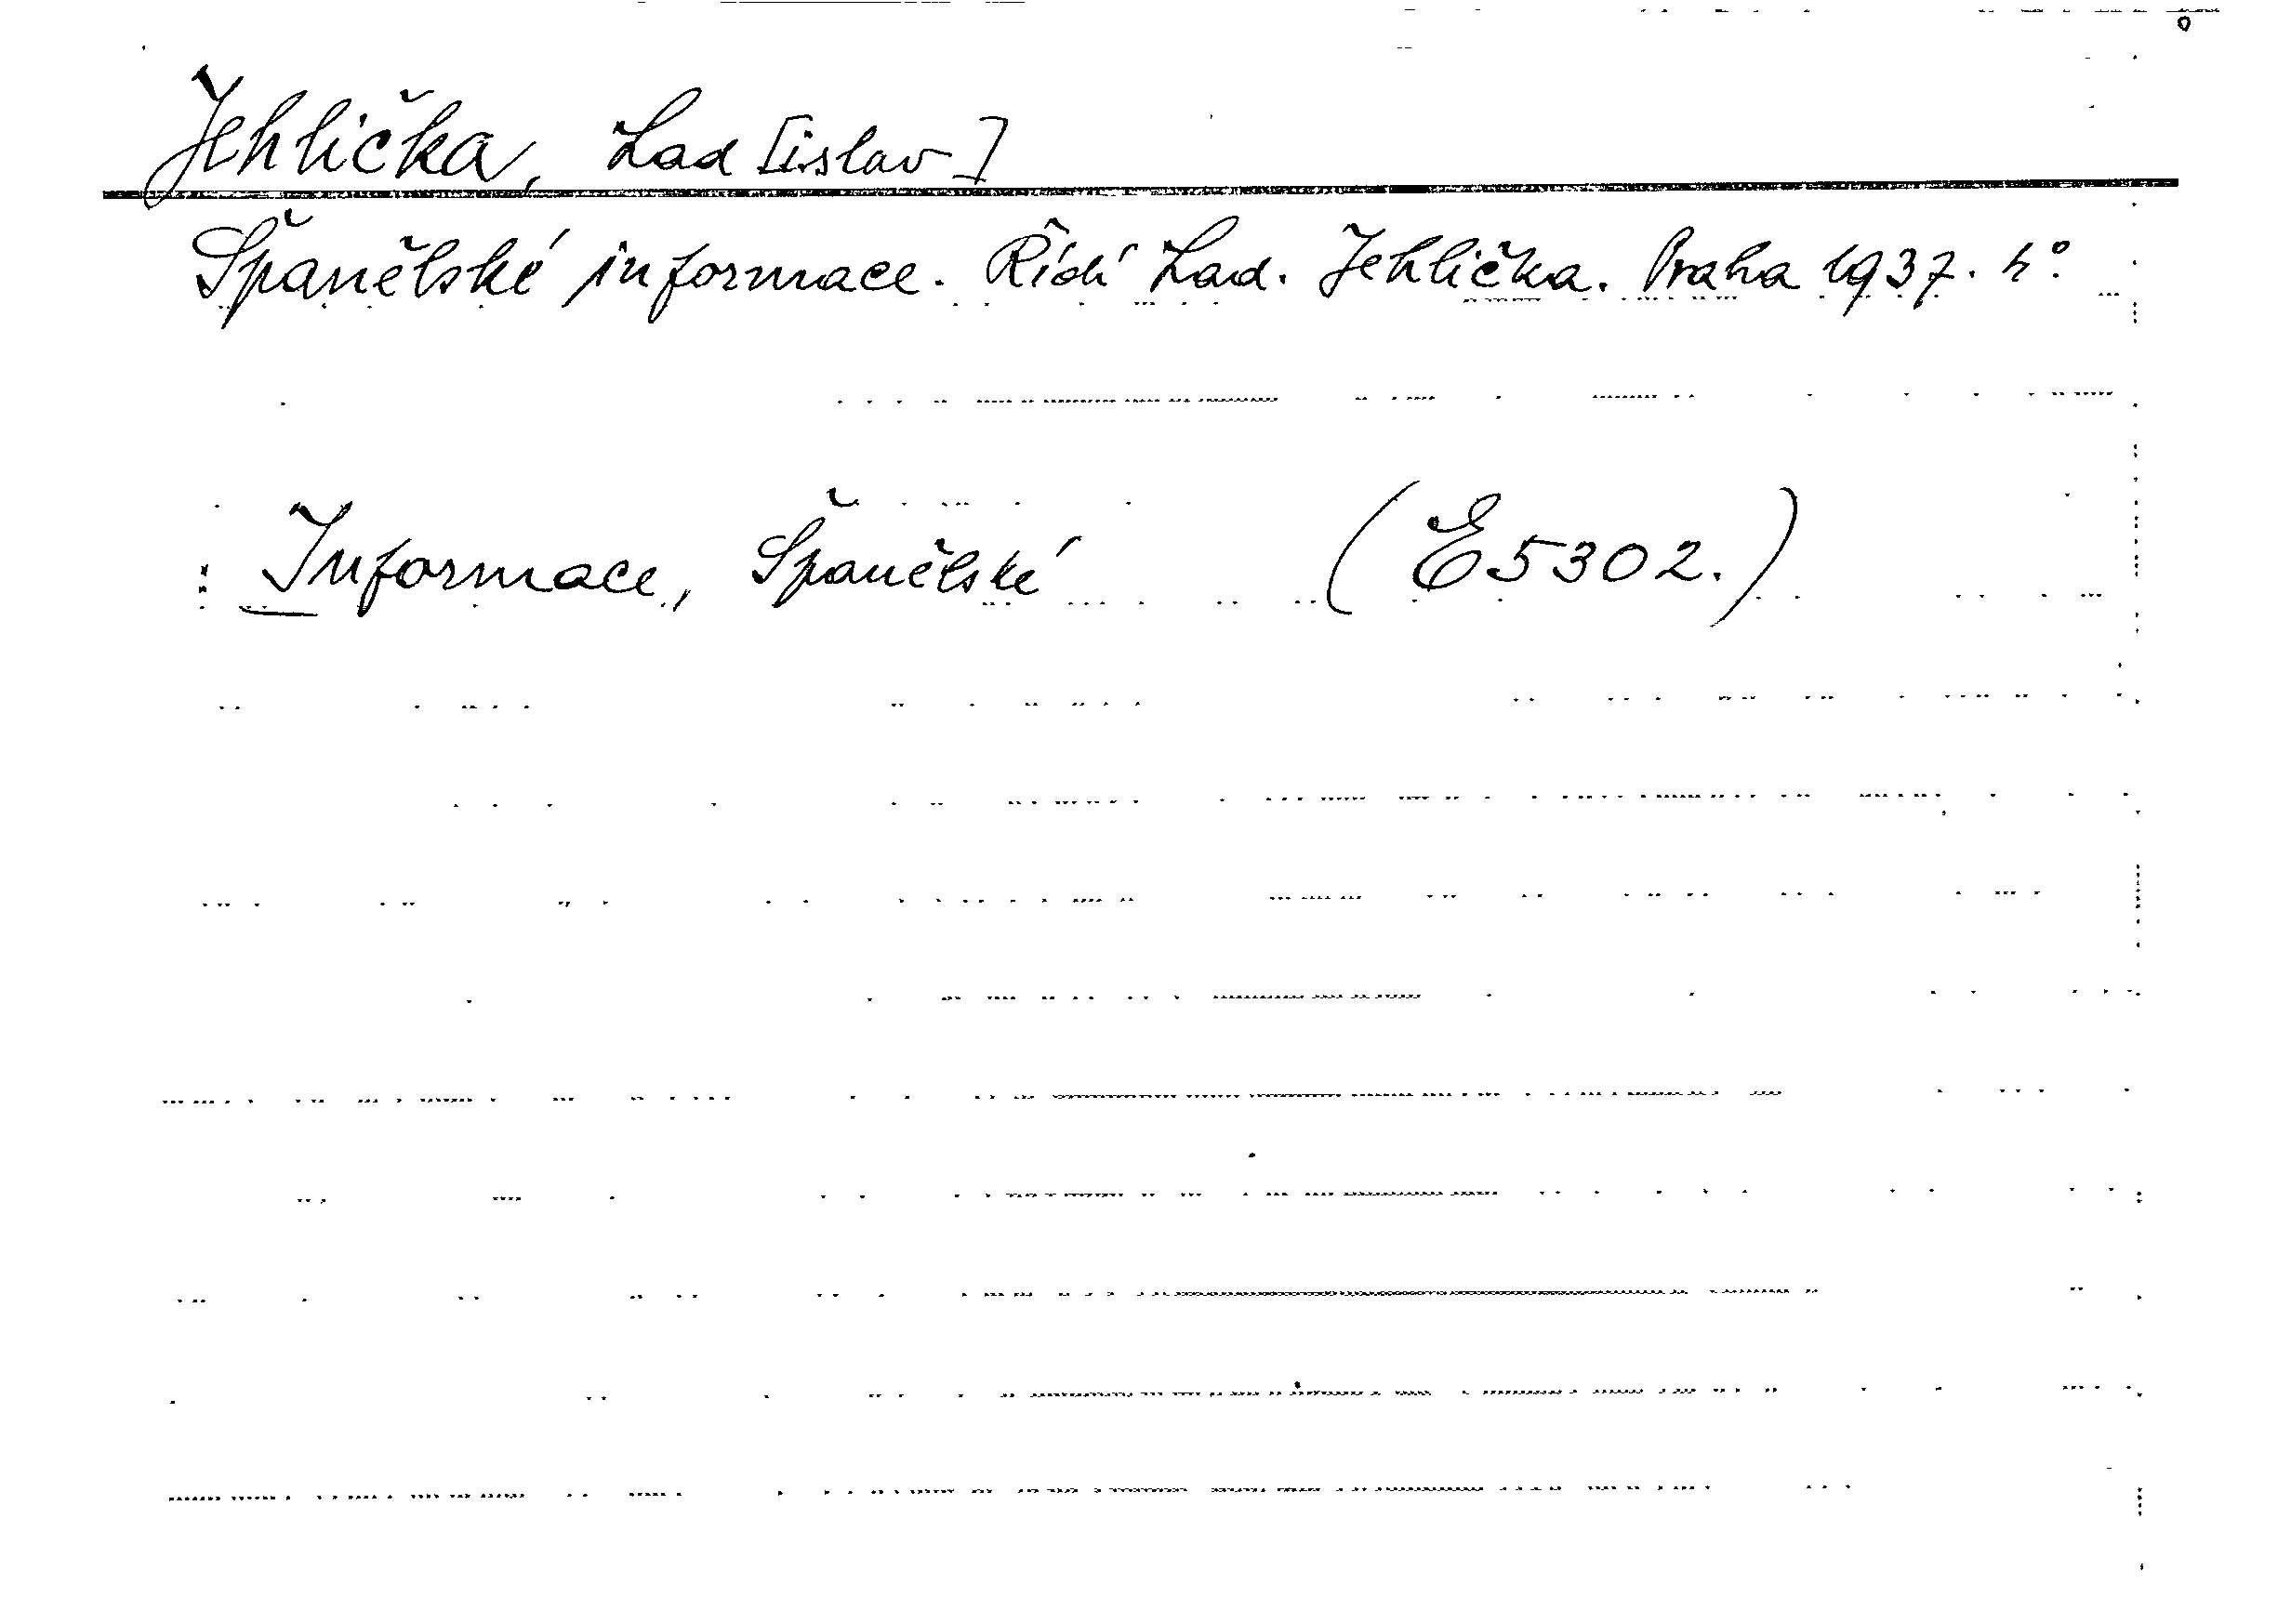 Jehlička, Lad[islav]
Španělské informace. Řídí Lad. Jehlička. Praha 1937. 4°.
Informace, Španělské (E5302.)